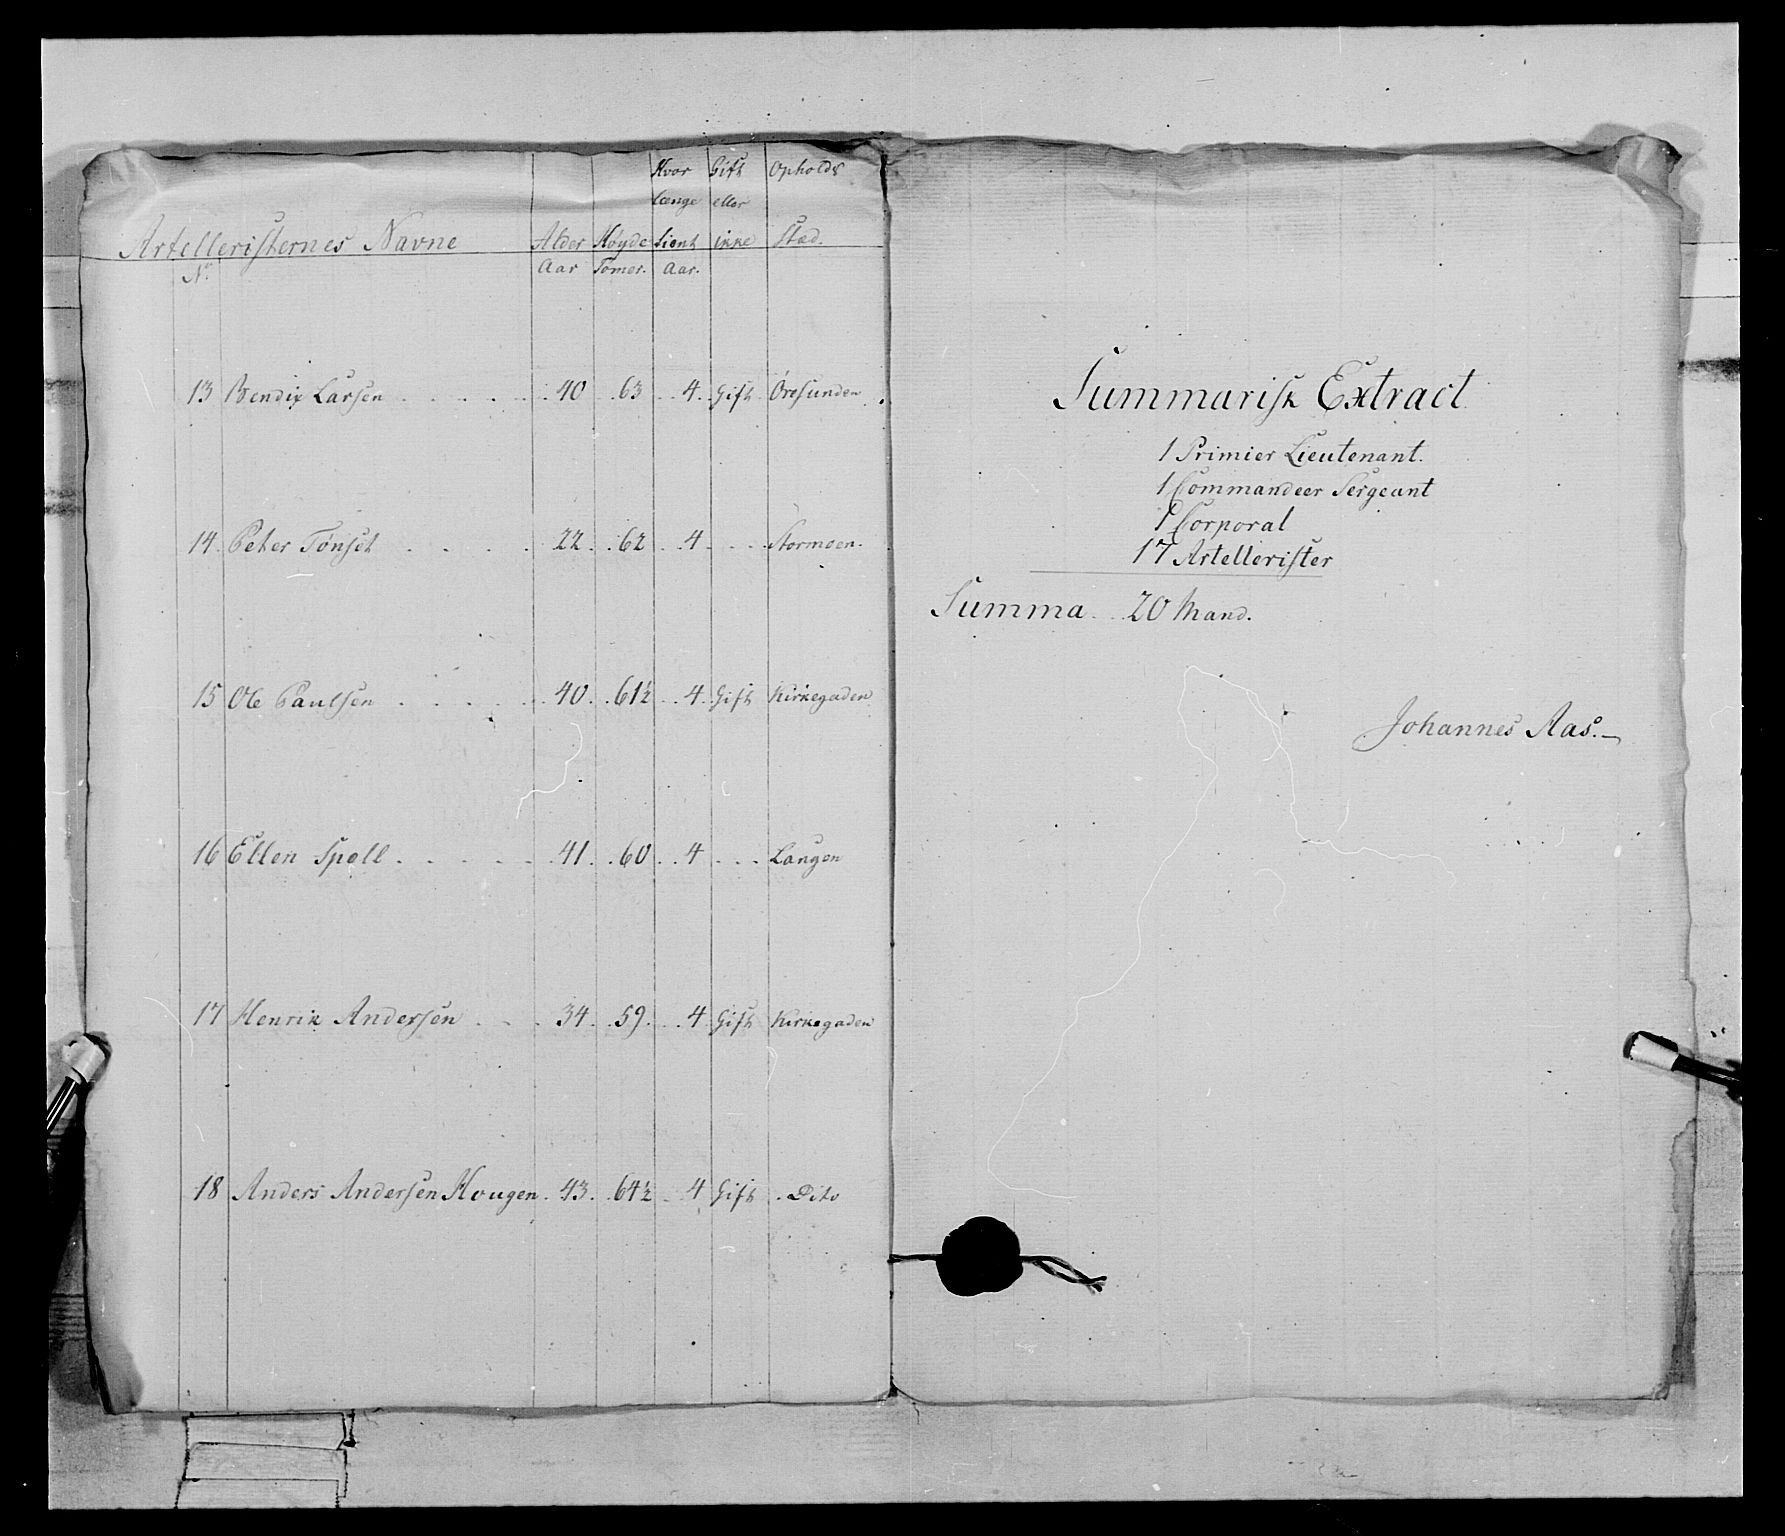 Hvor Gift Opholds
længe eller
Artelleristernes Navne Alder Høyde tient ikke Stæd.
No. Aar Tomer. Aar.
13 Bendix Larsen . . . . . 40 . . 63 . . 4 . Gift Øresunden
14 Peter Tønset . . . . 22 . . 62 . . 4 . . . Stormoen.
15 Ole Paulsen . . . . . 40 . . 61½ . . 4 . Gift Kirkegaden
16 Ellen Spell . . . . . 41 . . 60 . . 4 . . . Langen
17 Henrik Andersen . . . 34 . . 59 . . 4 Gift Kirkegaden
18 Anders Andersen Hougen . 43 . . 64½ . . 4 Gift . Dito
Summarisk Extract
1 Primier Lieutenant.
1 Commandeer Sergeant
1 Corporal
17 Artellerister
Summa . . 20 Mand.
Johannes Aas.